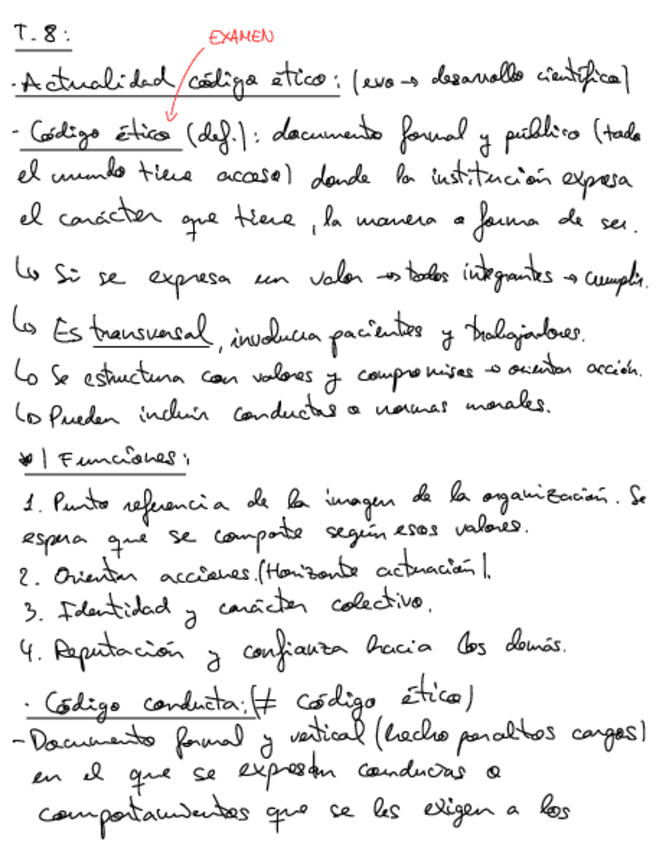 T.8:
EXAMEN
· Actualidad código ético: (evo → desarrollo científico)
- Código ético (def.): documento formal y público (todo
el mundo tiene acceso) donde la institución expresa
el carácter que tiene, la manera o forma de ser.
↳ Si se expresa un valor → todos integrantes → cumplir.
↳ Es transversal, involucra pacientes y trabajadores.
↳ Se estructura con valores y compromisos → orientan acción.
↳ Pueden incluir conductas o normas morales.
*| Funciones:
1. Punto referencia de la imagen de la organización. Se
espera que se comporte según esos valores.
2. Orientar acciones. (Horizonte actuación).
3. Identidad y carácter colectivo.
4. Reputación y confianza hacia los demás.
· Código conducta: (≠ código ético)
- Documento formal y vertical (hecho por altos cargos)
en el que se expresan conductas o
comportamientos que se les exigen a los